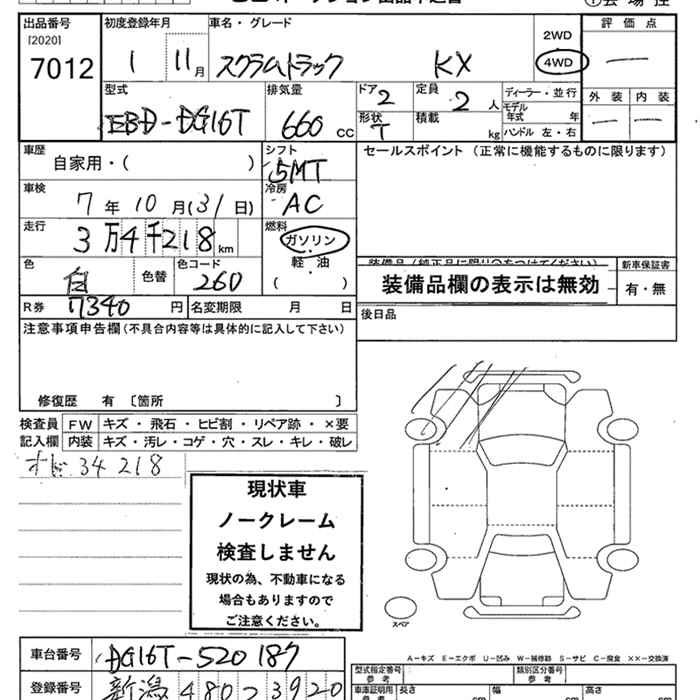 出品番号
[2020]
7012
初度登録年月
1 11月
車名・グレード
スクラムトラック KX
2WD
4WD
評価点
―
外装 内装
― ―
型式
EBD-DG16T
排気量
660 CC
ドア 2
形状 T
定員 2 人
積載 kg
ディーラー・並行
モデル年式 年
ハンドル 左・右
車歴
自家用・( )
シフト
5MT
車検
7年10月(31日)
冷房
AC
走行
3万4千218km
燃料
ガソリン
軽・油
( )
色
白 色替
色コード
260
R券 7340 円
名変期限 月 日
セールスポイント (正常に機能するものに限ります)
装備品欄の表示は無効
新車保証書
有・無
後日品
注意事項申告欄(不具合内容等は具体的に記入して下さい)
修復歴 有 〔箇所 〕
検査員記入欄
FW キズ・飛石・ヒビ割・リペア跡・×要
内装 キズ・汚レ・コゲ・穴・スレ・キレ・破レ
オド 34218
現状車
ノークレーム
検査しません
現状の為、不動車になる
場合もありますので
ご注意ください。
スペア
A-キズ E-エクボ U-凹み W-補修跡 S-サビ C-腐食 ××-交換済
車台番号 DG16T-520187
登録番号 新潟 480 う 3920
型式指定番号
参考
類別区分番号
参考
車庫証明用
長さ
幅
高さ